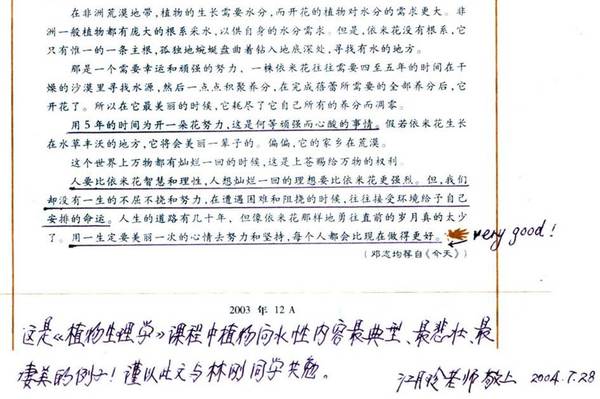 在非洲荒漠地带,植物的生长需要水分,而开花的植物对水分的需求更大。非
洲一般植物都有庞大的根系采水,以供自身的水分需求。但是,依米花没有根系,它
只有惟一的一条主根,孤独地蜿蜒盘曲着钻入地底深处,寻找有水的地方。
那是一个需要幸运和顽强的努力、一株依米花往往需要四至五年的时间在干
燥的沙漠里寻找水源,然后一点点积聚养分,在完成蓓蕾所需要的全部养分后,它
开花了。所以在它最美丽的时候,它耗尽了它自己所有的养分而凋零。
用5年的时间为开一朵花努力,这是何等顽强而心酸的事情。假若依米花生长
在水草丰沃的地方,它将会美丽一辈子的。偏偏,它的家乡在荒漠。
这个世界上万物都有灿烂一回的时候,这是上苍赐给万物的权利。
人要比依米花智慧和理性,人想灿烂一回的理想要比依米花更强烈。但,我们
却没有一生的不屈不挠和努力,在遭遇困难和阻挠的时候,往往接受环境给予自己
安排的命运。人生的道路有几十年、但像依米花那样地勇往直前的岁月真的太少
了。用一生定要美丽一次的心情去努力和坚持,每个人都会比现在做得更好。
very good!
(邓志均荐自《今天》)
2003 年 12 A
这是《植物生理学》课程中植物向水性内容最典型、最悲壮、最
凄美的例子!谨以此文与林刚同学共勉。
江月玲老师 敬上 2004.7.28